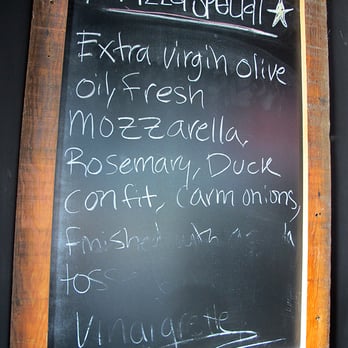 Pizza Special
Extra virgin olive
oil, fresh
mozzarella,
Rosemary, Duck
confit, carm onions,
finished with
toss
Vinaigrette